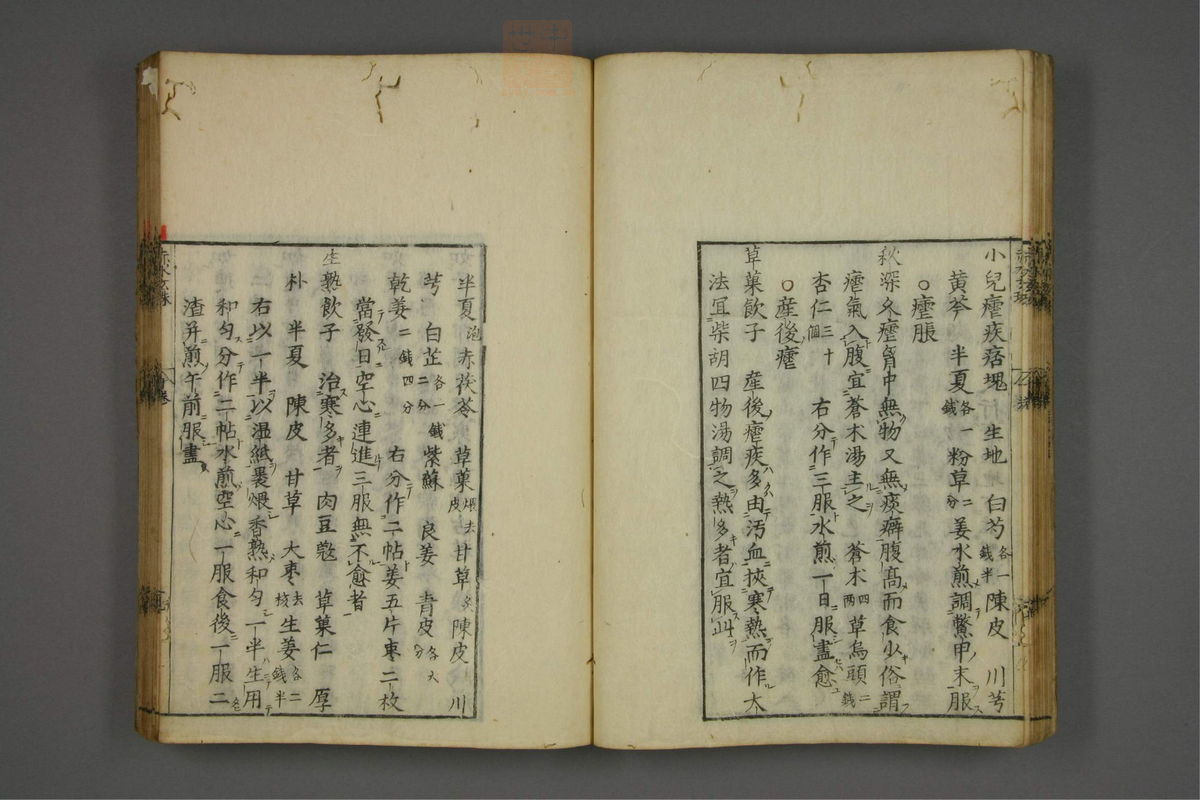 小兒瘧疾痞塊 生地 白芍各一錢半 陳皮 川芎
黄芩 半夏各一錢 粉草二分 姜水煎調鱉甲末服
○瘧脹
秋深久瘧胃中無物又無痰癖腹高而食少俗謂
瘧氣入腹宜蒼木湯主之 蒼木四兩 草烏頭二錢
杏仁三十個 右分作三服水煎一日服盡愈
○産後瘧
草菓飲子 産後瘧疾多由汚血挾寒熱而作大
法宜柴胡四物湯調之熱多者宜服此
半夏泡 赤茯苓 草菓煨去皮 甘草炙 陳皮 川
芎 白芷各一錢二分 紫蘇 良姜 青皮各六分
乾姜二錢四分 右分作二帖姜五片束二枚
當發日空心連進三服無不愈者
生熟飲子 治寒多者 肉豆蔲 草菓仁 厚
朴 半夏 陳皮 甘草 大枣去核 生姜各二錢半
右以一半以湿紙裹煨香熟和匀一半生用
和匀分作二帖水煎空心一服食後一服二
渣并煎午前服盡